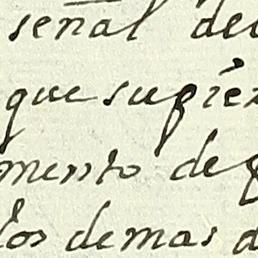 señal de
que sugiè
mento de
los demas